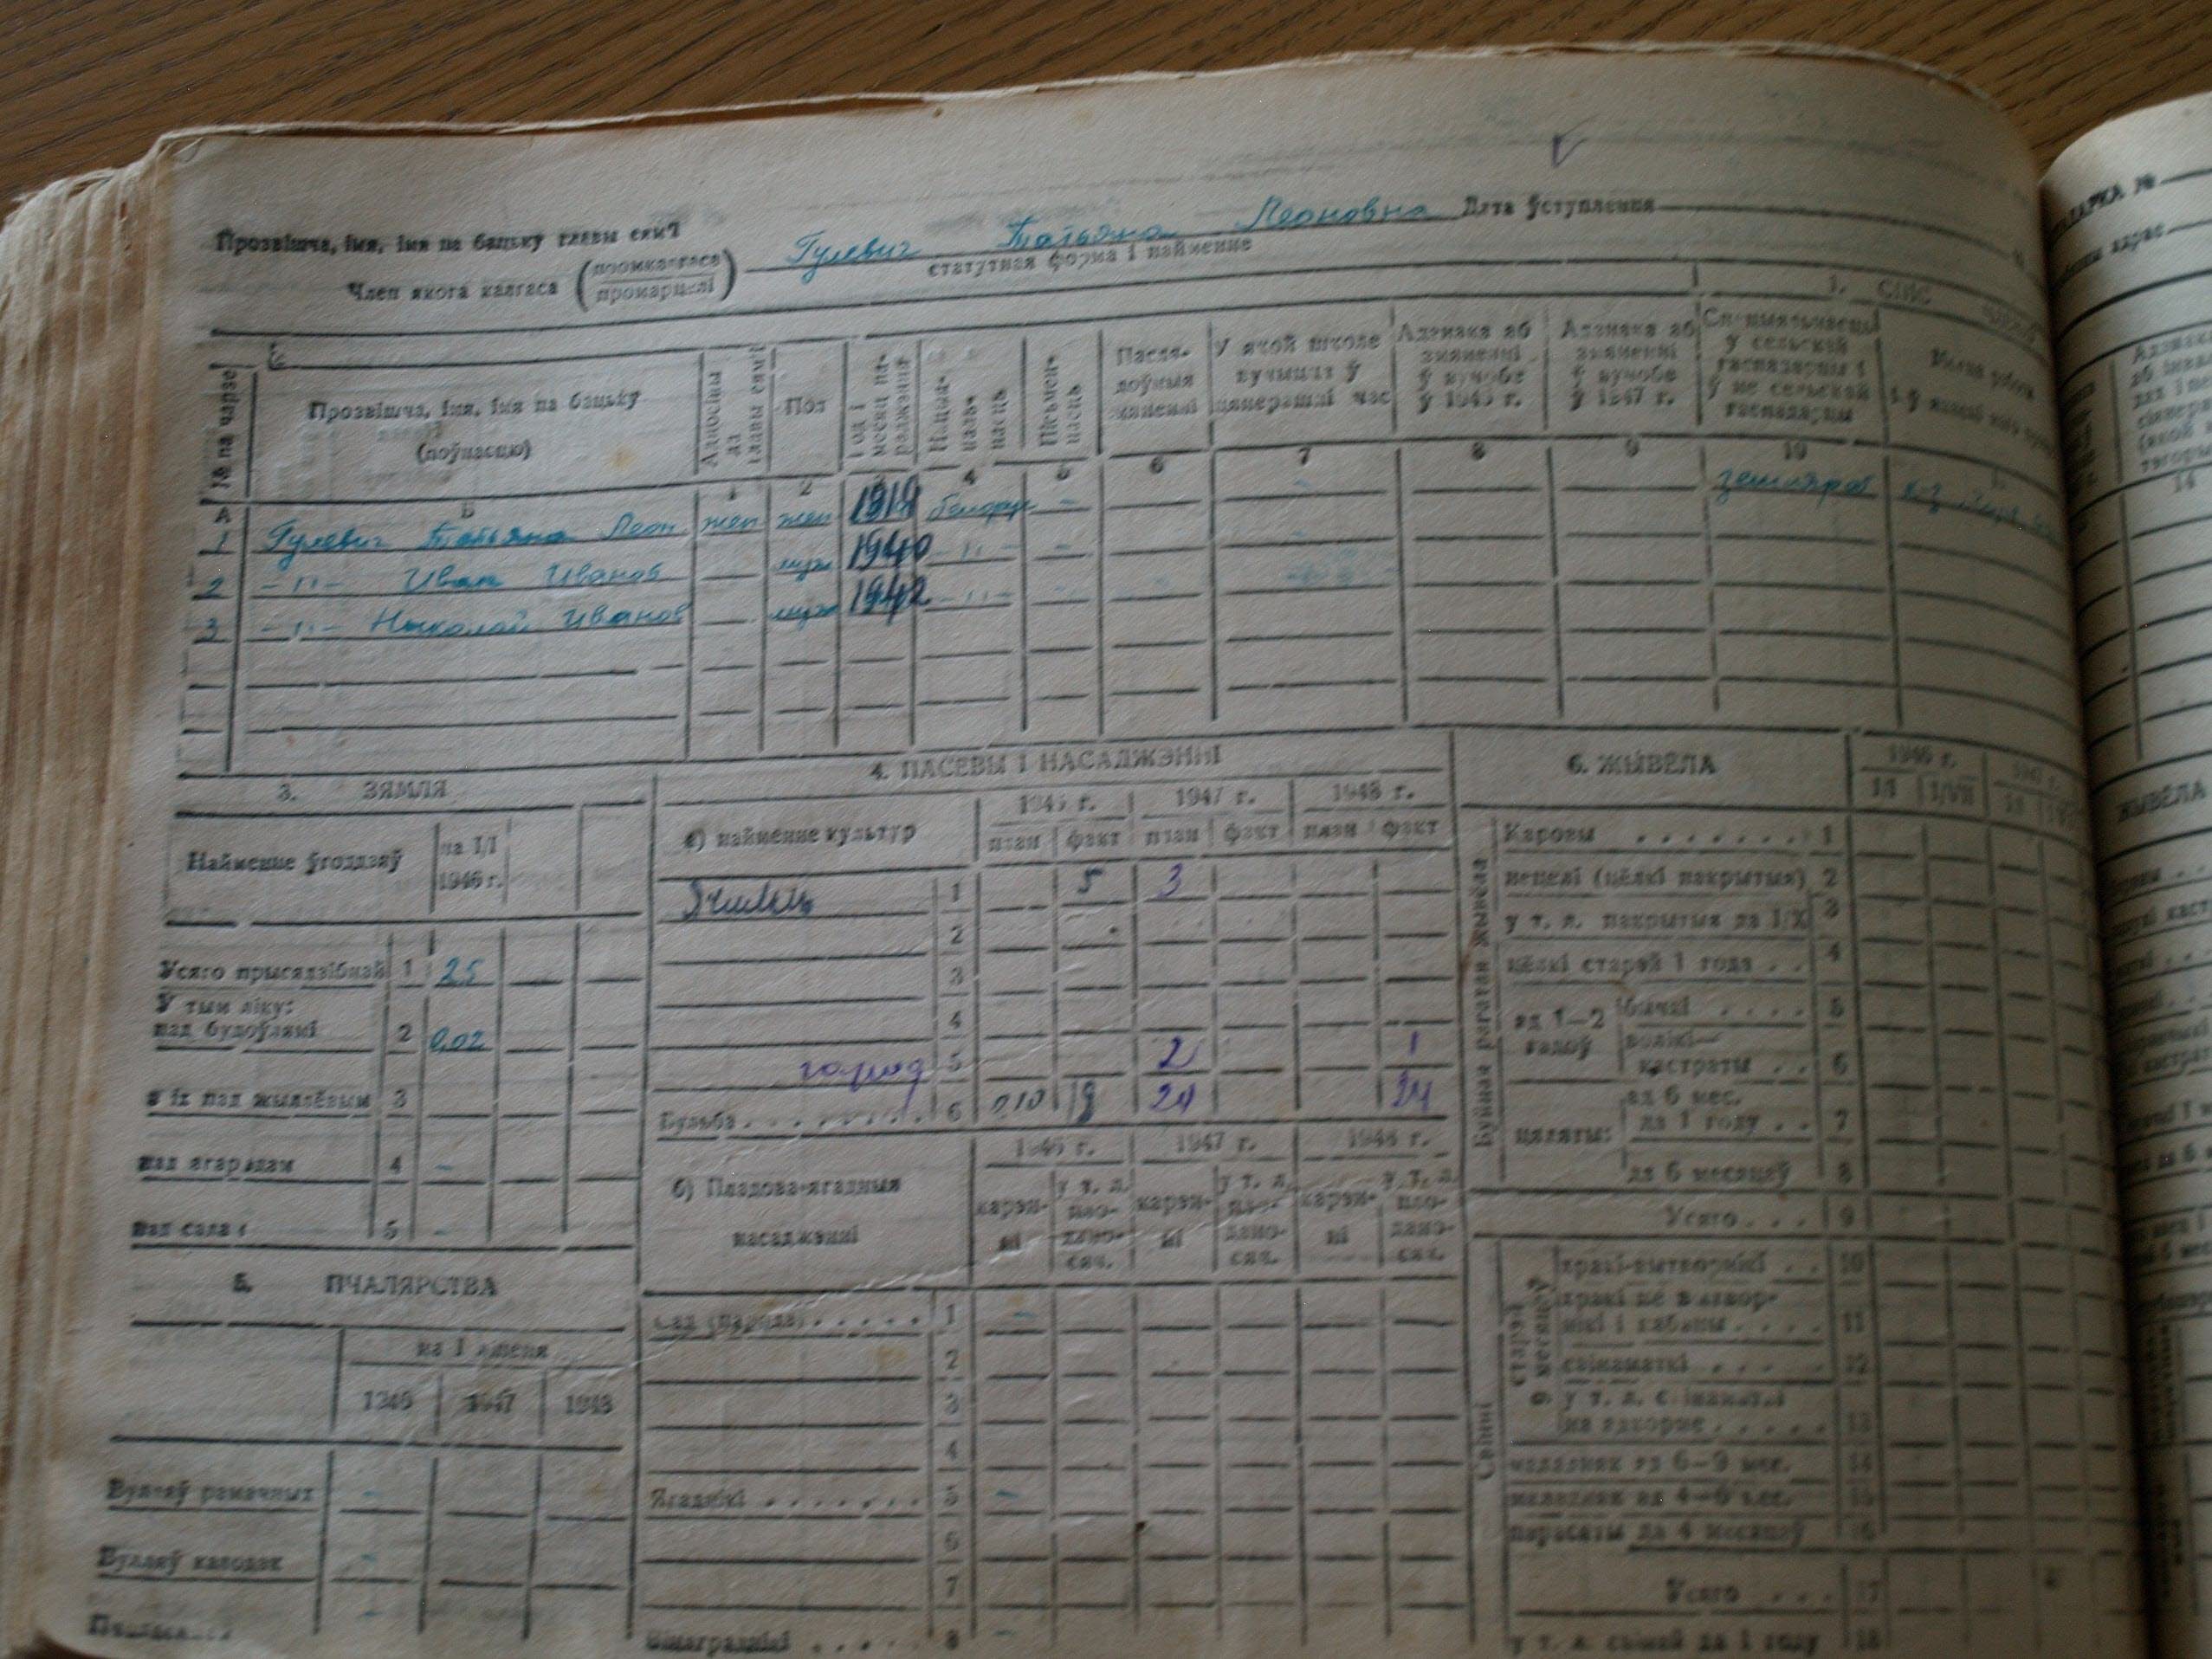 Прозвішча, імя, імя па бацьку главы сям'і Гулевич Татьяна Леоновна Дата ўступлення
Член якога калгаса (промкалгаса промарцелі) статутная форма і найменне
1. СПІС
№№ па чарзе
Прозвішча, імя, імя па бацьку (поўнасцю)
Адносіны да главы сям'і
Пол
Год і месяц нараджэння
Нацыянальнасць
Пісьменнасць
Паслядоўныя змяненні
У якой школе вучышся ў цяперашні час
Адзнака аб змяненні ў вучобе ў 1946 г.
Адзнака аб змяненні ў вучобе ў 1947 г.
Спецыяльнасць у сельскай гаспадарцы і ў не сельскай гаспадарцы
Месца работы
А Б 1 2 3 4 5 6 7 8 9 10
1 Гулевич Татьяна Леон жен жен 1918 белорус -
2 -"- Иван Иванов муж 1940 -"- -
3 -"- Николай Иванов муж 1942 -"- -
3. ЗЯМЛЯ
Найменне ўгоддзяў на 1/I 1946 г.
Усяго прысядзібнай 1 25
У тым ліку:
пад будоўлямі 2 0,02
з іх пад жыллёвым 3
пад агародам 4 -
пад садам 5 -
5. ПЧАЛЯРСТВА
на 1 ліпеня
1946 1947 1948
Вулляў рамачных -
Вулляў калодак -
4. ПАСЕВЫ І НАСАДЖЭННІ
а) найменне культур 1946 г. 1947 г. 1948 г.
план факт план факт план факт
Ячмень 1 5 3
2
3
4
город 5 2 1
Бульба 6 0,10 18 24 24
б) Пладова-ягадныя насаджэнні 1946 г. 1947 г. 1948 г.
карэнні у т. л. пладаносяч. карэнні у т. л. пладаносяч. карэнні у т. л. пладаносяч.
Сад (парода) 1 -
2
3
4
Ягаднікі 5 -
6
7
Вінаграднікі 8 -
6. ЖЫВЁЛА
1946 г. 1947 г.
1/I 1/VII
Буйная рагатая жывёла
Каровы 1
нецелі (цёлкі пакрытыя) 2
у т. л. пакрытыя да 1/X 3
цёлкі старэй 1 года 4
ад 1—2 гадоў бычкі 5
волікі—кастраты 6
цяляты: ад 6 мес. да 1 году 7
да 6 месяцаў 8
Усяго 9
Свінні
старэй 9 месяцаў
хракі-вытворнікі 10
хракі не вытворнікі і кабаны 11
свінаматкі 12
у т. л. свінаматкі на адкорме 13
маладняк ад 6—9 мес. 14
маладняк ад 4—6 мес. 15
парасяты да 4 месяцаў 16
Усяго 17
у т. л. свіней да 1 году 18
ЖЫВЁЛА
14